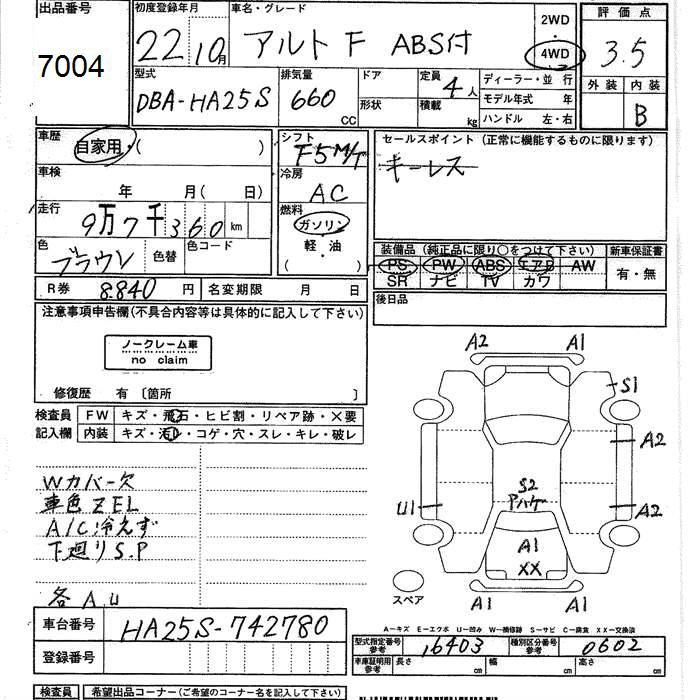 出品番号 初度登録年月 車名・グレード 2WD 評価点
7004 22 10月 アルト F ABS付 4WD 3.5
型式 排気量 ドア 定員 4人 ディーラー・並行 外装 内装
DBA-HA25S 660 CC 形状 積載 kg モデル年式 年 B
ハンドル 左・右
車歴 自家用・( ) シフト F5M/T セールスポイント (正常に機能するものに限ります)
車検 年 月( 日) 冷房 AC キーレス
走行 9万7千360km 燃料 ガソリン
色 ブラウン 色替 色コード 軽・油 ( ) 装備品 (純正品に限り○をつけて下さい) 新車保証書
PS PW ABS エアB AW 有・無
SR ナビ TV カワ
R券 8.840円 名変期限 月 日 後日品
注意事項申告欄(不具合内容等は具体的に記入して下さい)
ノークレーム車
no claim
修復歴 有 〔箇所 〕
検査員 FW キズ・飛石・ヒビ割・リペア跡・×要
記入欄 内装 キズ・汚レ・コゲ・穴・スレ・キレ・破レ
A2 A1
S1
A2
Wカバー欠
車色ZEL
A/C冷えず
下廻りS.P
各AU
U1 S2 アハゲ A2
A1
XX
スペア A1 A1
A-キズ E-エクボ U-凹み W-補修跡 S-サビ C-腐食 XX-交換済
車台番号 HA25S-742780
型式指定番号 参考 16403 種別区分番号 参考 0602
登録番号 車庫証明用 参考 長さ cm 幅 cm 高さ cm
検査員 希望出品コーナー(ご希望のコーナー名を記入して下さい)